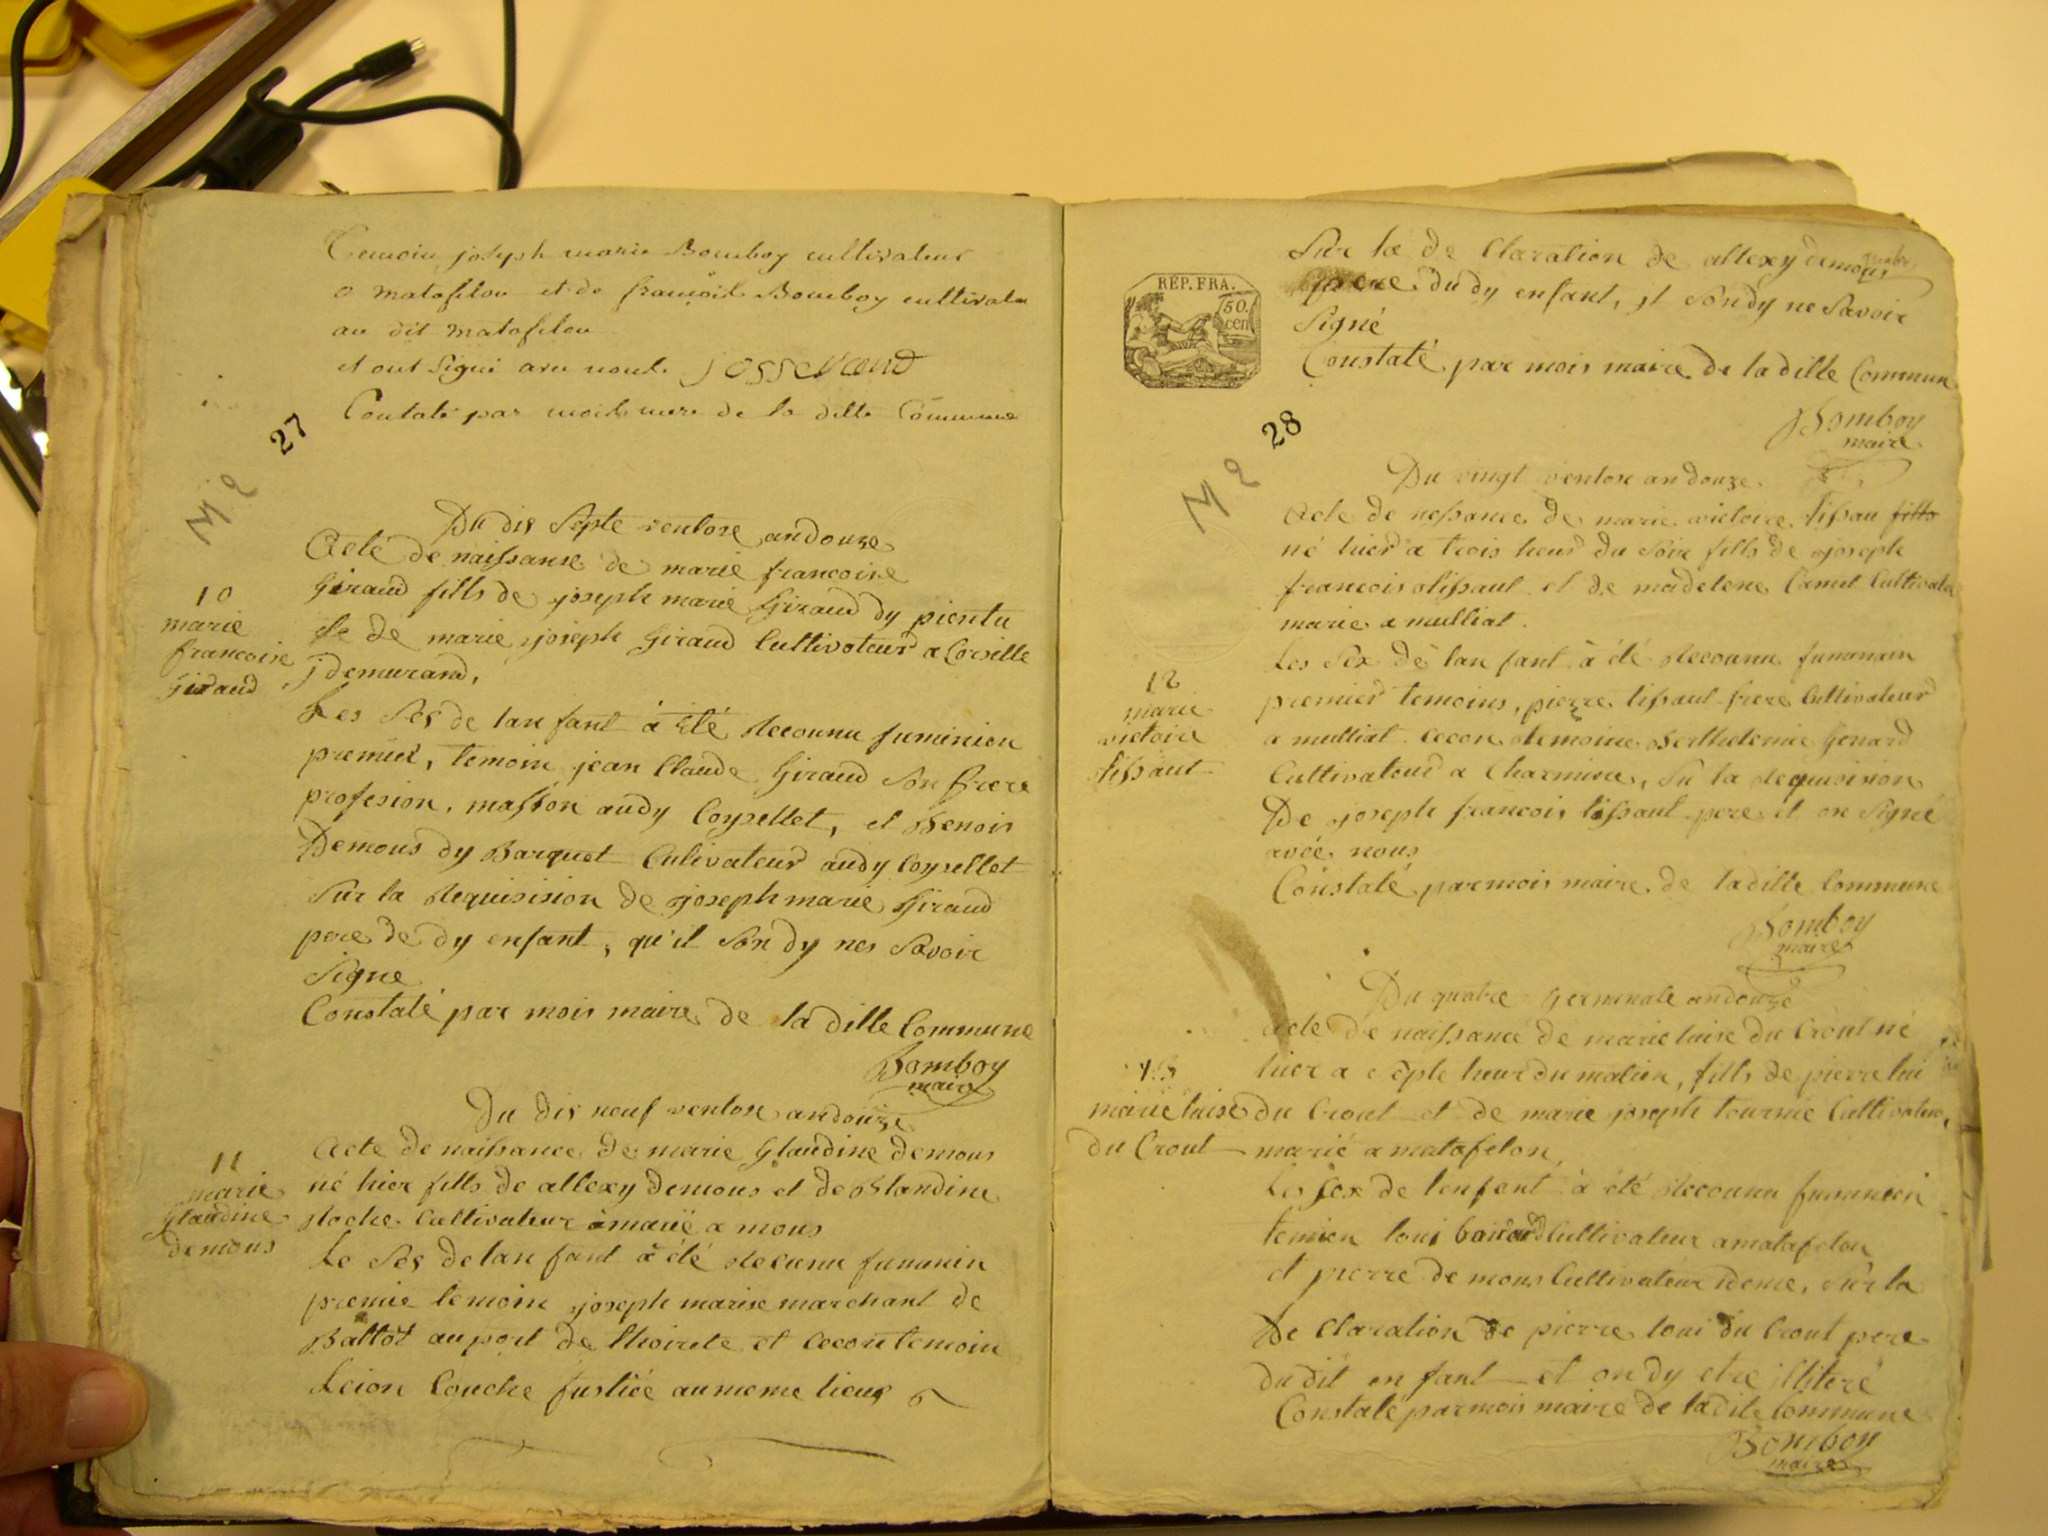 Temoin joseph marie Bomboy cultivateur
a matafelon et de françois Bomboy cultivate
au dit matafelon
et ont Signé avec nous. josserand
Contaté par mois mere de la ditte Commune
27
Du dix Septe ventose an douze
Acté de naissanse de marie francoise
Giraud fills de joseph marie Giraud dy
de de marie joseph Giraud Cultivateur a
demurand,
10
marie
francoise
giraud
Les Ses de lan fant à été Reconnu
premier, temoin jean Claude Giraud Son frere
profesion, masson audy Coysellet, et Benois
Demous dy Barquet Culivateur audy Coysellet
Sur la Requisision de joseph marie Giraud
pere de dy enfant, qu'il Son dy nes Savoir
Signe
Constaté par mois maire de la ditte Commune
Bomboy
maire
Du dix neuf ventose an douze
11
marie
Glaudine
demous
Acte de naissance de marie Glaudine demous
né hier fills de allexy demous et de Blandine
Roche Cultivateur à marié a mous
Le Ses de lan fant à été Reconu funinin
premie temoin joseph marise marchant de
Battot au port de thoirete et cecon temoin
au meme lieux
RÉP. FRA.
50.
cen
Sur la de Claration de allexy demous
pere du dy enfant, il Son dy ne Savoir
Signé
Constaté par mois maire de la ditte Commune
Bomboy
maire
28
Du vingt ventose an douze
Acte de nessance de marie victoire tissau fills
né hier a trois heur du Soir fills de joseph
francois tissaut et de madelene Camet Cultivate
marie a mulliat.
12
marie
victoire
tissaut
Les Sex de lan fant à été Reconnu funinin
premier temoins, pierre tissaut frere Cultivateur
a mulliat cecon temoine Berthelemie Genard
Cultivateur a Charmine, Su la Requisision
De joseph francois tissaut pere et on Signé
avec nous
Constaté par mois maire de la ditte Commune
Bomboy
maire
Du quatre Germinale an douze
Acte de naissance de marie luise du Crout né
hier a cepte heur du matien, fills de pierre lui
du Crout et de marie joseph tournie Cultivateur,
marié a matafelon
13
marie luise
du Crout
Les Sex de lenfent à été Reconnu funinein
temien loui Cultivateur a matafelon
et pierre de mous Cultivateur ideme, Sur la
De Claration de pierre loui du Crout pere
du dit enfant et on dy etre illiteré
Constaté par mois maire de la dite Commune
Bomboy
maire